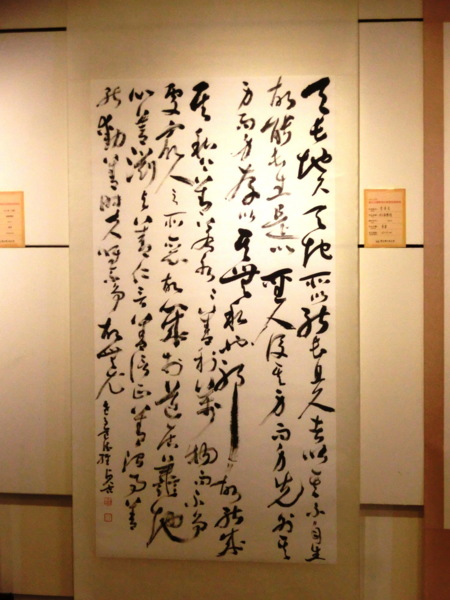 天長地久天地所以能長且久者以其不自生
故能長生是以聖人後其身而身先外其
身而身存以其無私也邪故能成
其私上善若水水善利萬物而不爭
處眾人之所惡故幾於道居善地
心善淵與善仁言善信正善治事善
能動善時夫唯不爭故無尤